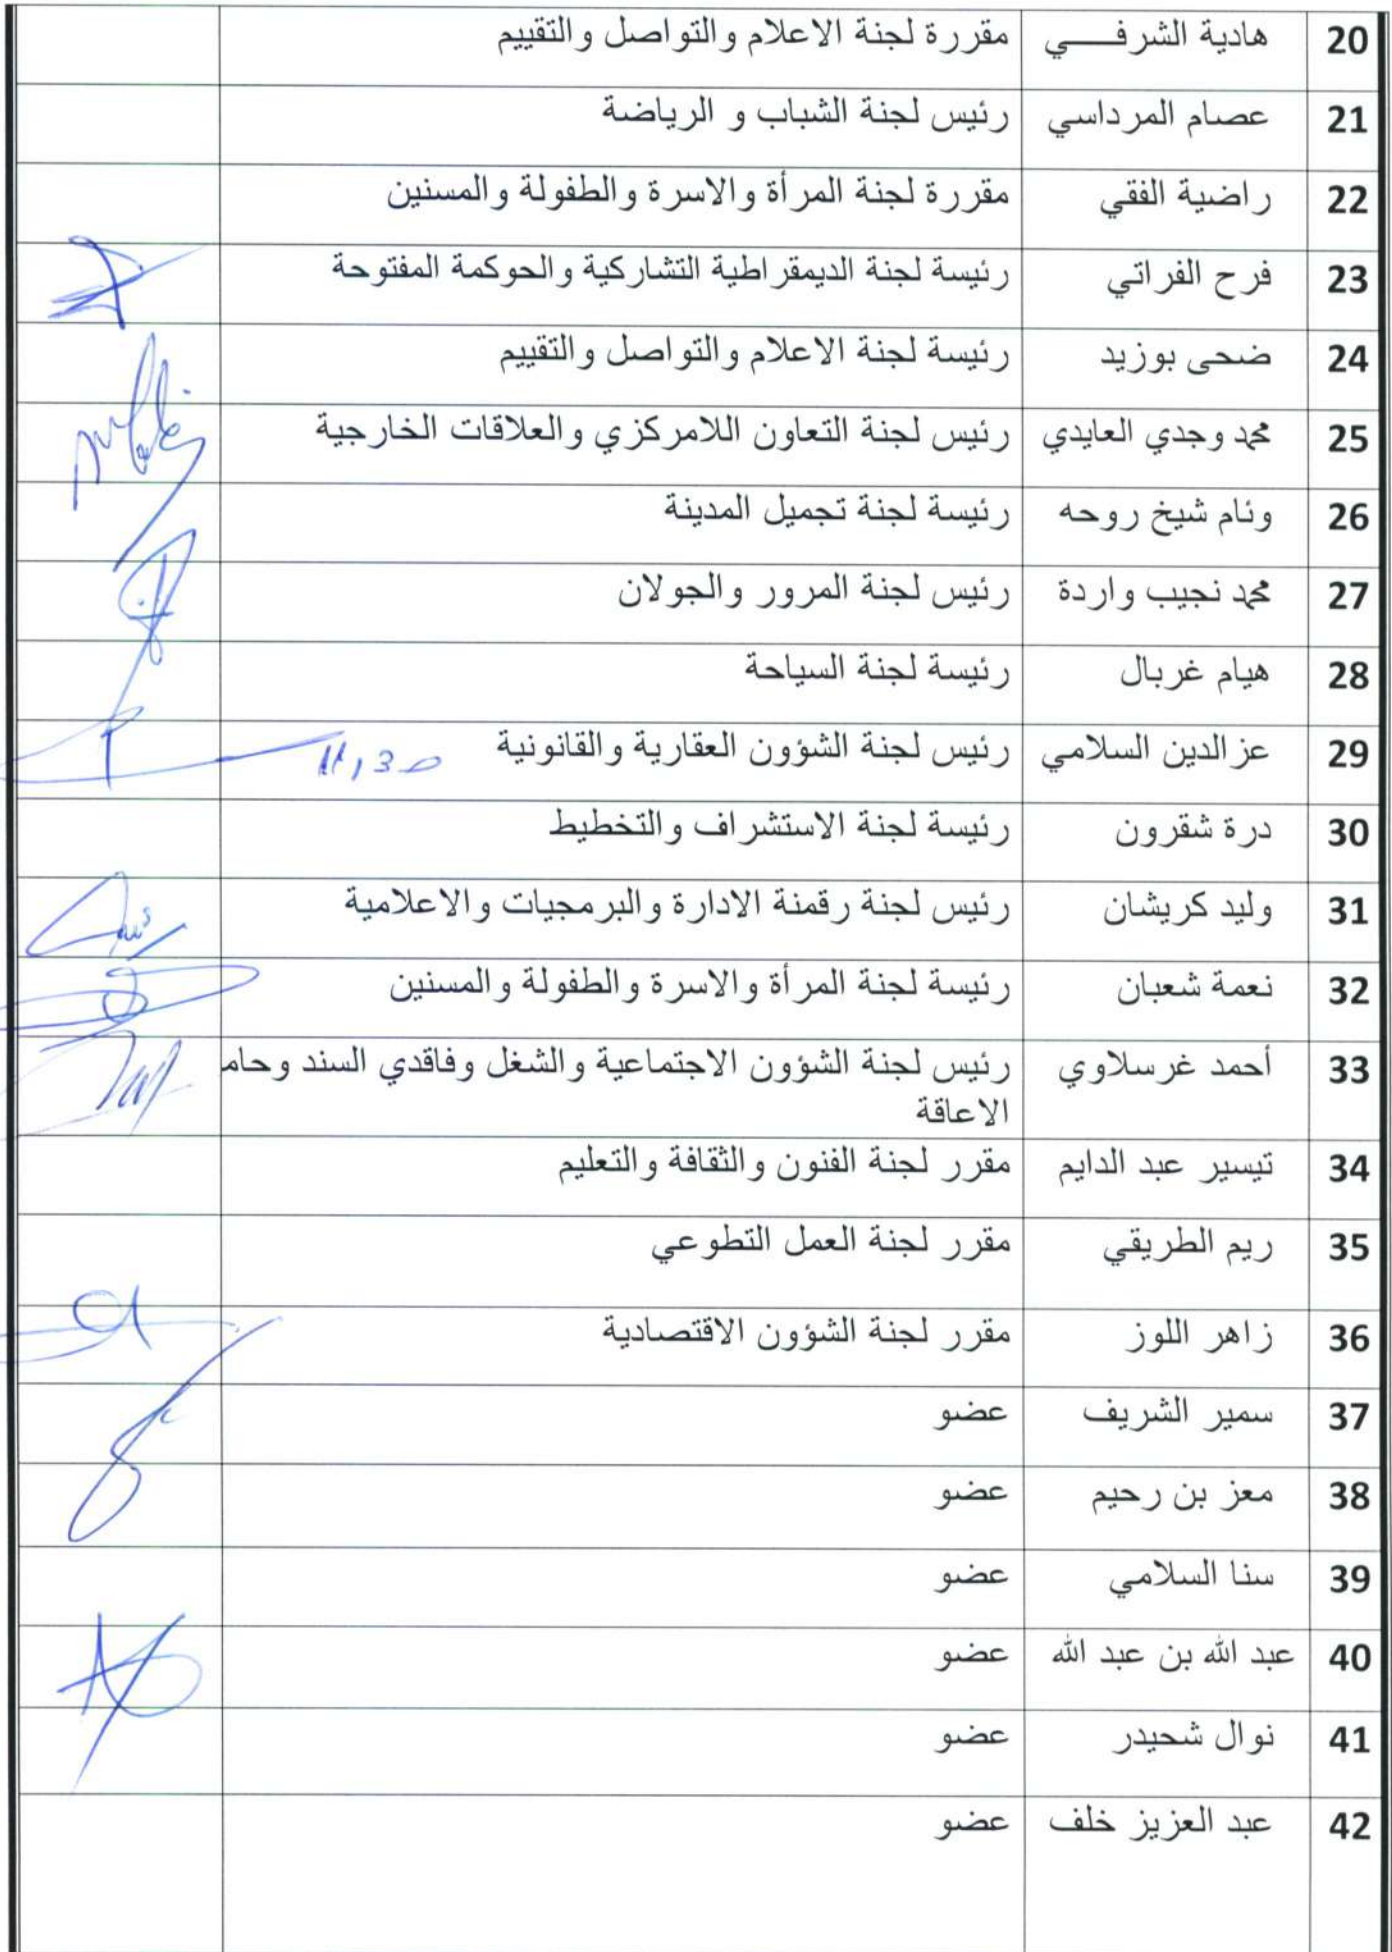 20 هادية الشرفـــــي مقررة لجنة الاعلام والتواصل والتقييم
21 عصام المرداسي رئيس لجنة الشباب و الرياضة
22 راضية الفقي مقررة لجنة المرأة والاسرة والطفولة والمسنين
23 فرح الفراتي رئيسة لجنة الديمقراطية التشاركية والحوكمة المفتوحة
24 ضحى بوزيد رئيسة لجنة الاعلام والتواصل والتقييم
25 محمد وجدي العايدي رئيس لجنة التعاون اللامركزي والعلاقات الخارجية
26 وئام شيخ روحه رئيسة لجنة تجميل المدينة
27 محمد نجيب واردة رئيس لجنة المرور والجولان
28 هيام غربال رئيسة لجنة السياحة
29 عز الدين السلامي رئيس لجنة الشؤون العقارية والقانونية
30 درة شقرون رئيسة لجنة الاستشراف والتخطيط
31 وليد كريشان رئيس لجنة رقمنة الادارة والبرمجيات والاعلامية
32 نعمة شعبان رئيسة لجنة المرأة والاسرة والطفولة والمسنين
33 أحمد غرسلاوي رئيس لجنة الشؤون الاجتماعية والشغل وفاقدي السند وحام
الاعاقة
34 تيسير عبد الدايم مقرر لجنة الفنون والثقافة والتعليم
35 ريم الطريقي مقرر لجنة العمل التطوعي
36 زاهر اللوز مقرر لجنة الشؤون الاقتصادية
37 سمير الشريف عضو
38 معز بن رحيم عضو
39 سنا السلامي عضو
40 عبد الله بن عبد الله عضو
41 نوال شحيدر عضو
42 عبد العزيز خلف عضو